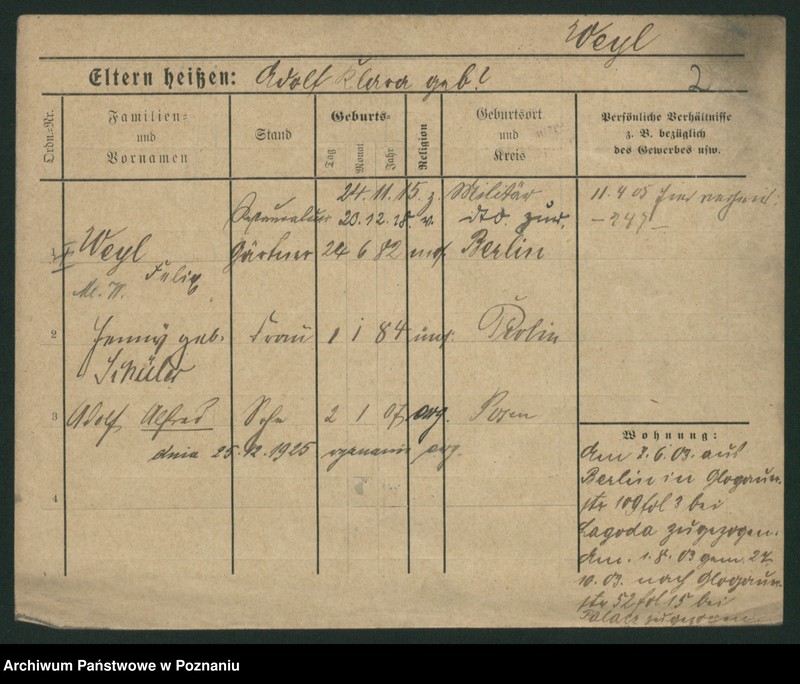 Weyl
Eltern heißen: Adolf Klara geb?
2
Ordn.-Nr.
Familien-
und
Vornamen
Stand
Geburts-
Tag
Monat
Jahr
Religion
Geburtsort
und
Kreis
Persönliche Verhältnisse
z. B. bezüglich
des Gewerbes usw.
24. 11. 15. z. Militär
20. 12. 18. v. dto. zur.
11. 4 05
1 Weyl Gärtner 24 6 82 mos. Berlin
Felix
2 Jenny geb. Frau 1 1 84 Berlin
Schüler
3 Adolf Alfred Sohn 2 1 07 Posen
dnia 25. 12. 1925
4
Wohnung:
Am 2. 6. 03. aus
Berlin in Glogauer-
str 109 bei
Lagoda zugezogen.
Am. 1. 8. 03 gem. 27
10. 03. nach Glogauer-
str 52 bei
zugezogen.
Archiwum Państwowe w Poznaniu